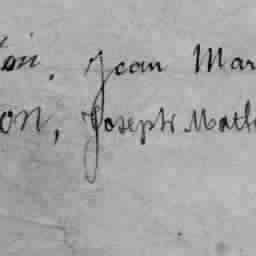 Jean Mar
on, Joseph Math